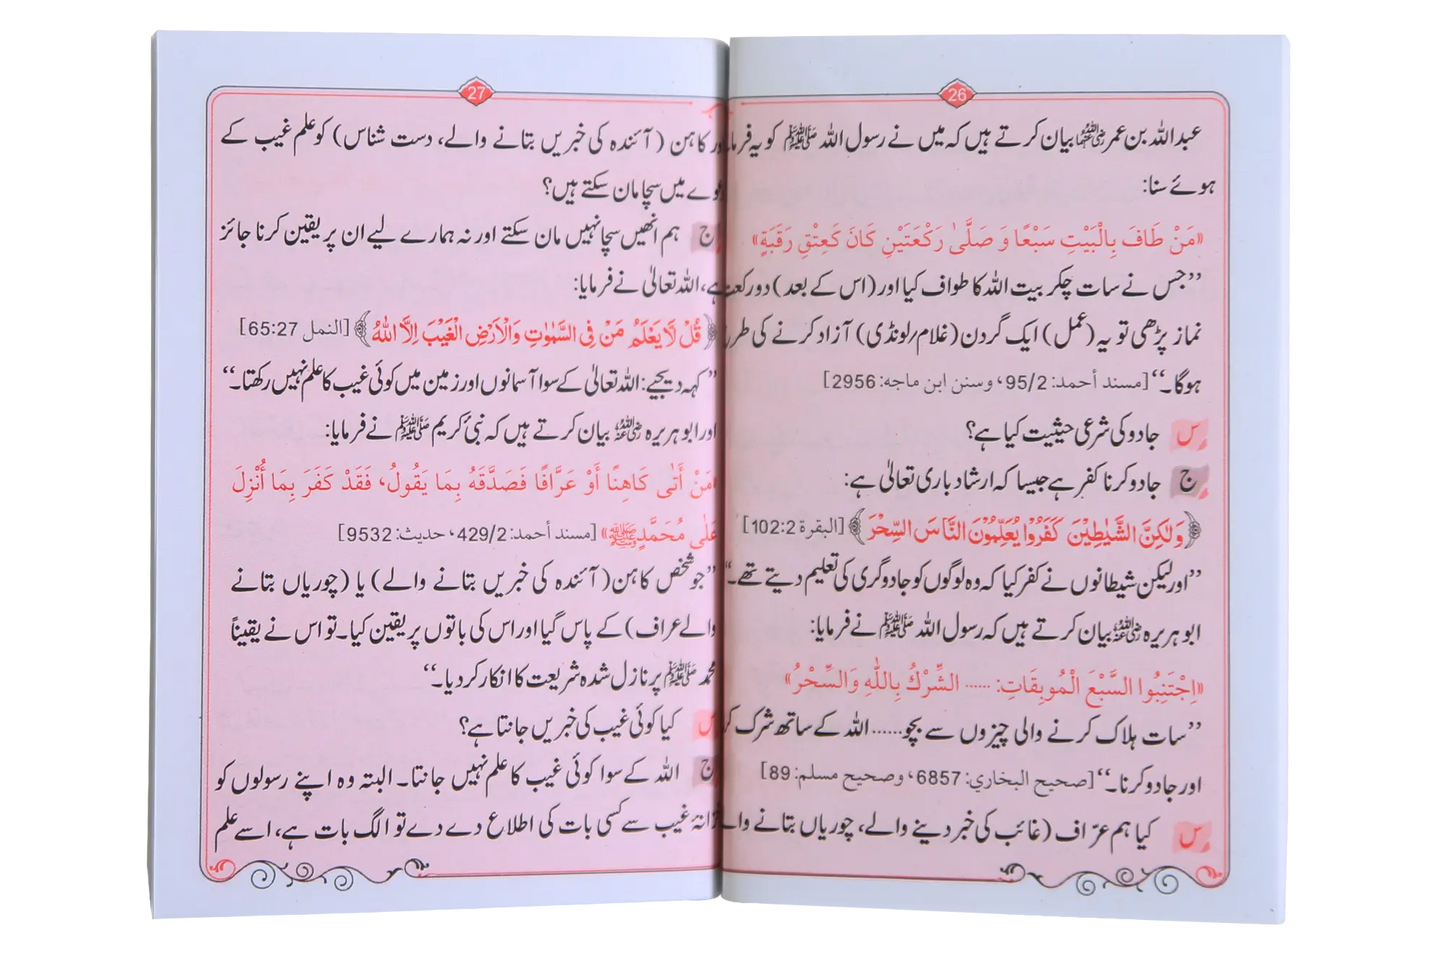 26
عبداللہ بن عمر رضی اللہ عنہما بیان کرتے ہیں کہ میں نے رسول اللہ ﷺ کو یہ
ہوئے سنا:
«مَنْ طَافَ بِالْبَيْتِ سَبْعًا وَ صَلَّىٰ رَكْعَتَيْنِ كَانَ كَعِتْقِ رَقَبَةٍ»
’’جس نے سات چکر بیت اللہ کا طواف کیا اور (اس کے بعد) دو
نماز پڑھی تو یہ (عمل) ایک گردن (غلام/لونڈی) آزاد کرنے کی
ہوگا۔‘‘ [مسند أحمد: 95/2، وسنن ابن ماجه: 2956]
س جادو کی شرعی حیثیت کیا ہے؟
ج جادو کرنا کفر ہے جیسا کہ ارشاد باری تعالیٰ ہے:
﴿وَلٰكِنَّ الشَّيٰطِيْنَ كَفَرُوْا يُعَلِّمُوْنَ النَّاسَ السِّحْرَ﴾ [البقرة 102:2]
’’اور لیکن شیطانوں نے کفر کیا کہ وہ لوگوں کو جادوگری کی تعلیم دیتے تھے۔‘‘
ابو ہریرہ رضی اللہ عنہ بیان کرتے ہیں کہ رسول اللہ ﷺ نے فرمایا:
«اِجْتَنِبُوا السَّبْعَ الْمُوبِقَاتِ: ...... الشِّرْكُ بِاللّٰهِ وَالسِّحْرُ»
’’سات ہلاک کرنے والی چیزوں سے بچو...... اللہ کے ساتھ شرک
اور جادو کرنا۔‘‘ [صحيح البخاري: 6857، وصحيح مسلم: 89]
س کیا ہم عرّاف (غائب کی خبر دینے والے، چوریاں بتانے
27
کاہن (آئندہ کی خبریں بتانے والے، دست شناس) کو علم غیب کے
میں سچا مان سکتے ہیں؟
ج ہم انھیں سچا نہیں مان سکتے اور نہ ہمارے لیے ان پر یقین کرنا جائز
ہے، اللہ تعالیٰ نے فرمایا:
﴿قُلْ لَّا يَعْلَمُ مَنْ فِي السَّمٰوٰتِ وَالْاَرْضِ الْغَيْبَ اِلَّا اللّٰهُ﴾ [النمل 65:27]
’’کہہ دیجیے: اللہ تعالیٰ کے سوا آسمانوں اور زمین میں کوئی غیب کا علم نہیں رکھتا۔‘‘
اور ابو ہریرہ رضی اللہ عنہ بیان کرتے ہیں کہ نبیٔ کریم ﷺ نے فرمایا:
«مَنْ أَتٰى كَاهِنًا أَوْ عَرَّافًا فَصَدَّقَهُ بِمَا يَقُولُ، فَقَدْ كَفَرَ بِمَا أُنْزِلَ
عَلٰى مُحَمَّدٍ ﷺ» [مسند أحمد: 429/2، حديث: 9532]
’’جو شخص کاہن (آئندہ کی خبریں بتانے والے) یا (چوریاں بتانے
والے عراف) کے پاس گیا اور اس کی باتوں پر یقین کیا۔ تو اس نے یقیناً
محمد ﷺ پر نازل شدہ شریعت کا انکار کر دیا۔‘‘
س کیا کوئی غیب کی خبریں جانتا ہے؟
ج اللہ کے سوا کوئی غیب کا علم نہیں جانتا۔ البتہ وہ اپنے رسولوں کو
غیب سے کسی بات کی اطلاع دے دے تو الگ بات ہے، اسے علم